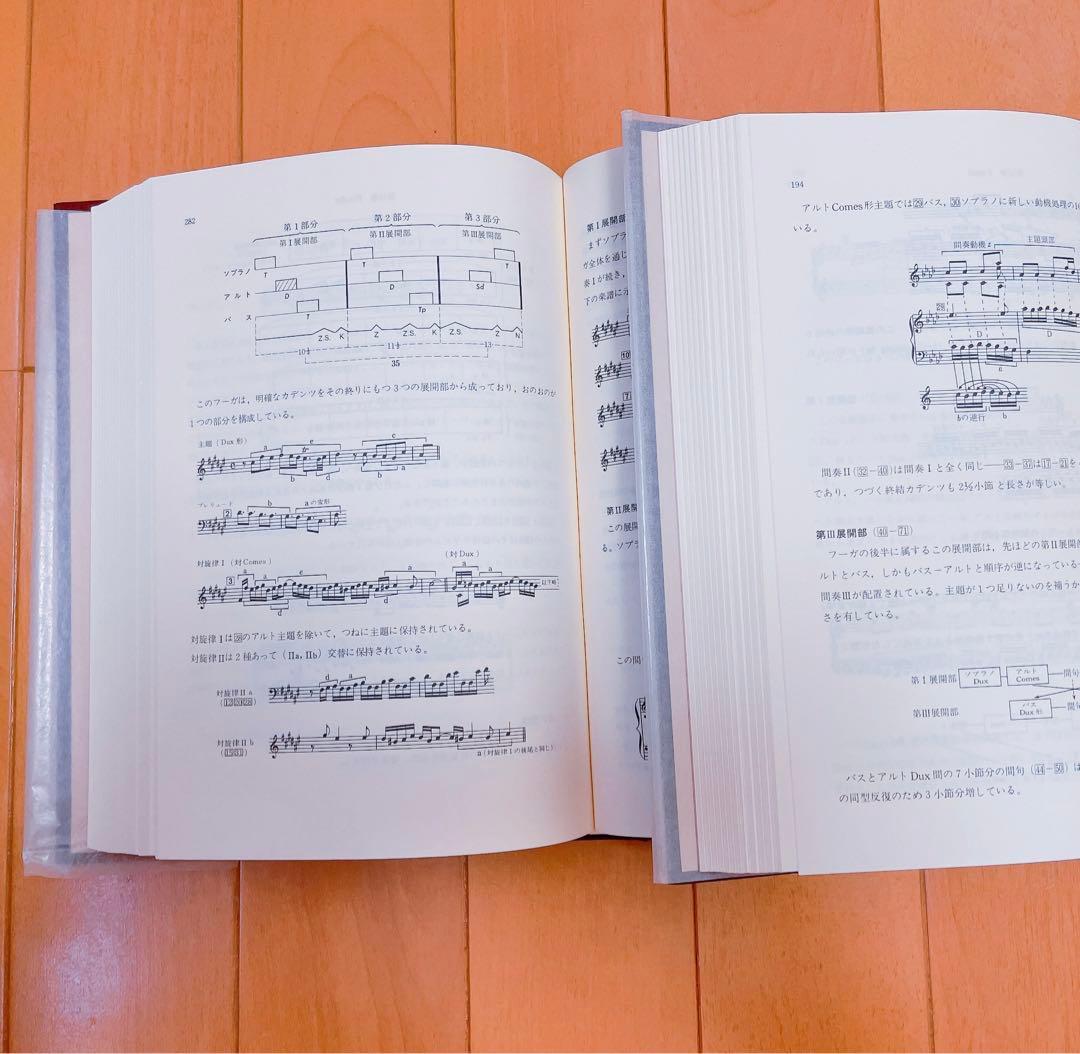 282
第1部分 第2部分 第3部分
第Ⅰ展開部 第Ⅱ展開部 第Ⅲ展開部
ソプラノ T T T
アルト D D Sd
バス T Tp
Z.S. K Z Z.S. K Z.S. Z N
10½ 11½ 13
35
このフーガは，明確なカデンツをその終りにもつ3つの展開部から成っており，おのおのが
1つの部分を構成している。
主題（Dux 形）
a e c
b d b a
プレリュード
2 b aの変形
対旋律Ⅰ（対Comes） （対Dux）
3 a a e a a
d d 以下略
対旋律Ⅰは28のアルト主題を除いて，つねに主題に保持されている。
対旋律Ⅱは2種あって（Ⅱa，Ⅱb）交替に保持されている。
対旋律Ⅱ a
d a
対旋律Ⅱ b
a（対旋律Ⅰの後尾と同じ）
第Ⅰ展開部
まずソプラ
が全体を通じ
奏Ⅰが続き，
下の楽譜に示
10
7
第Ⅱ展開
この展開
る。ソプラ
この間
194
アルトComes形主題では29バス，30ソプラノに新しい動機処理の
いる。
間奏動機z 主題頭部
28
D D
a
bの逆行 b
間奏Ⅱ（32−40）は間奏Ⅰと全く同じ——33−37は17−21を
であり，つづく終結カデンツも2½小節と長さが等しい。
第Ⅲ展開部（40−71）
フーガの後半に属するこの展開部は，先ほどの第Ⅱ展開
ルトとバス，しかもバス−アルトと順序が逆になっている
間奏Ⅲが配置されている。主題が1つ足りないのを補うか
さを有している。
第Ⅰ展開部 ソプラノ Dux アルト Comes 間句
第Ⅲ展開部 バス Dux 形 間
バスとアルトDux間の7小節分の間句（44−50）は
の同型反復のため3小節分増している。